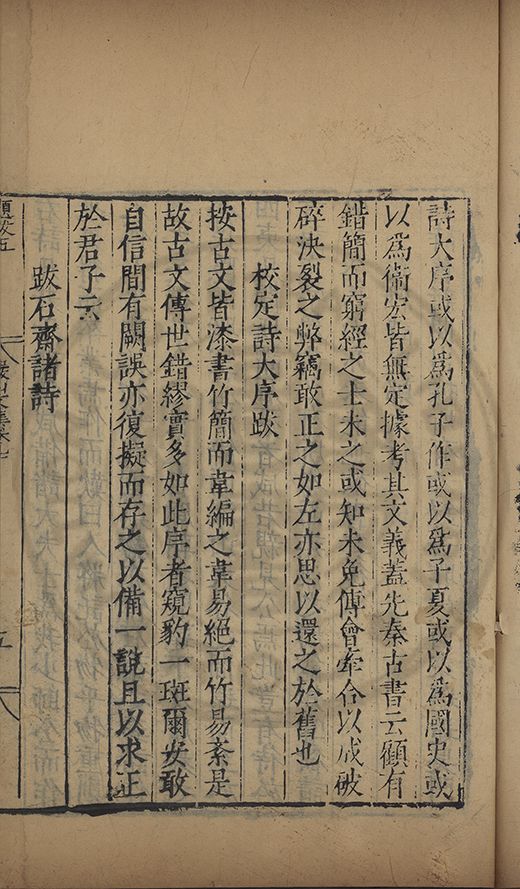 詩大序或以爲孔子作或以爲子夏或以爲國史或
以爲衞宏皆無定據考其文義蓋先秦古書云顧有
錯簡而窮經之士未之或知未免傅會牽合以成破
碎決裂之弊竊敢正之如左亦思以還之於舊也
校定詩大序跋
按古文皆漆書竹簡而韋編之韋易絕而竹易紊是
故古文傳世錯繆實多如此序者窺豹一斑爾安敢
自信間有闕誤亦復擬而存之以備一說且以求正
於君子云
跋石齋諸詩